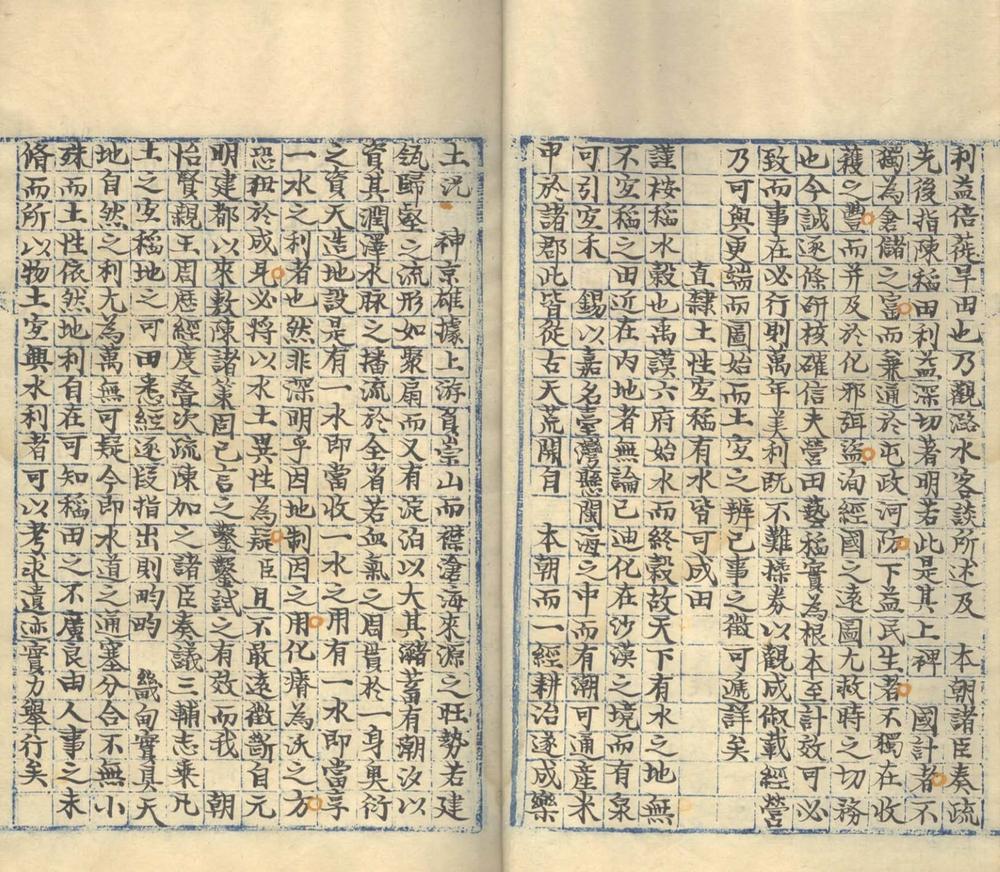 利益倍蓰旱田也乃觀潞水客談所述及　本朝諸臣奏疏
先後指陳稻田利益深切著明若此是其上裨　國計者不
獨為倉儲之富而兼通於屯政河防下益民生者不獨在收
穫之豐而并及於化邪弭盜洵經國之遠圖尤救時之切務
也今誠逐條研核確信夫營田藝稻實為根本至計效可必
致而事在必行則萬年美利既不難操券以觀成俶載經營
乃可與更端而圖始而土宜之辨已事之徵可遞詳矣
直隸土性宜稻有水皆可成田
謹桉稻水穀也禹謨六府始水而終穀故天下有水之地無
不宜稻之田近在內地者無論已迪化在沙漠之境而有泉
可引宜禾　錫以嘉名臺灣懸閩海之中而有潮可通產米
甲於諸郡此皆從古天荒闢自　本朝而一經耕治遂成樂
土況　神京雄據上游負崇山而襟滄海來源之旺勢若建
瓴歸壑之流形如聚扇而又有淀泊以大其瀦蓄有潮汐以
資其潤澤水脉之播流於全省若血氣之周貫於一身奧衍
之資天造地設是有一水即當收一水之用有一水即當孚
一水之利者也然非深明乎因地制因之用化瘠為沃之方
恐狃於成見必將以水土異性為疑臣且不敢遠徵斷自元
明建都以來敷陳諸策固已言之鑿鑿試之有效而我　朝
怡賢親王周歷經度叠次疏陳加之諸臣奏議三輔志乘凡
土之宜稻地之可田悉經逐段指出則畇畇　畿甸實具天
地自然之利尤為萬無可疑今即水道之通塞分合不無小
殊而土性依然地利自在可知稻田之不廣良由人事之未
脩而所以物土宜興水利者可以考求遺迹實力舉行矣